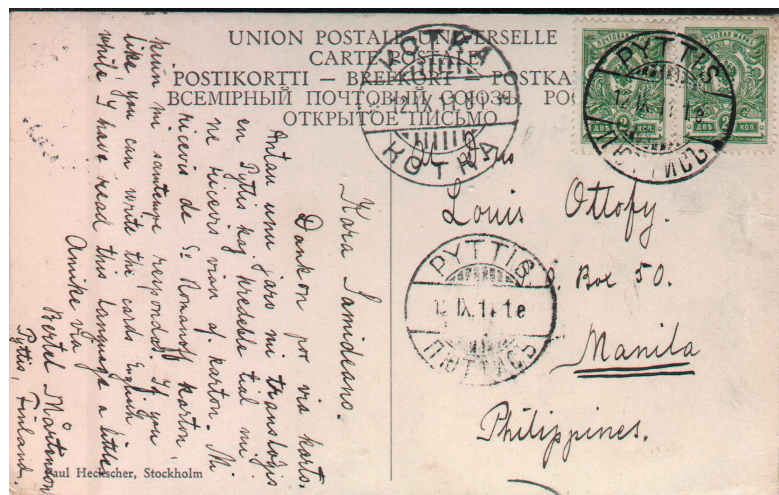 UNION POSTALE UNIVERSELLE
CARTE POSTALE
POSTIKORTTI — BREFKORT — POSTKA
ВСЕМІРНЫЙ ПОЧТОВЫЙ СОЮЗЪ. РОС
ОТКРЫТОЕ ПИСЬМО
KOTKA
12.IX.11.
КОТКА
PYTTIS
12.IX.11.1e
PYTTIS
12.IX.11.1e
ПЮТТИСЪ
2 2
ДВѢ КОП. ДВѢ КОП.
Louis Ottofy.
Box 50.
Manila
Philippines.
Kara Samideano.
Dankon po via karto.
Antaŭ unu jaro mi transloĝis
en Pyttis kaj kredeble tial mi
ne ricevis vian karton. Mi
ricevis de Romanoff karton,
kiun mi samtempe respondas. If you
like, you can write the cards English
while I have read this language a little.
Amike via
Bertel Mårtenson
Pyttis, Finland.
Paul Heckscher, Stockholm